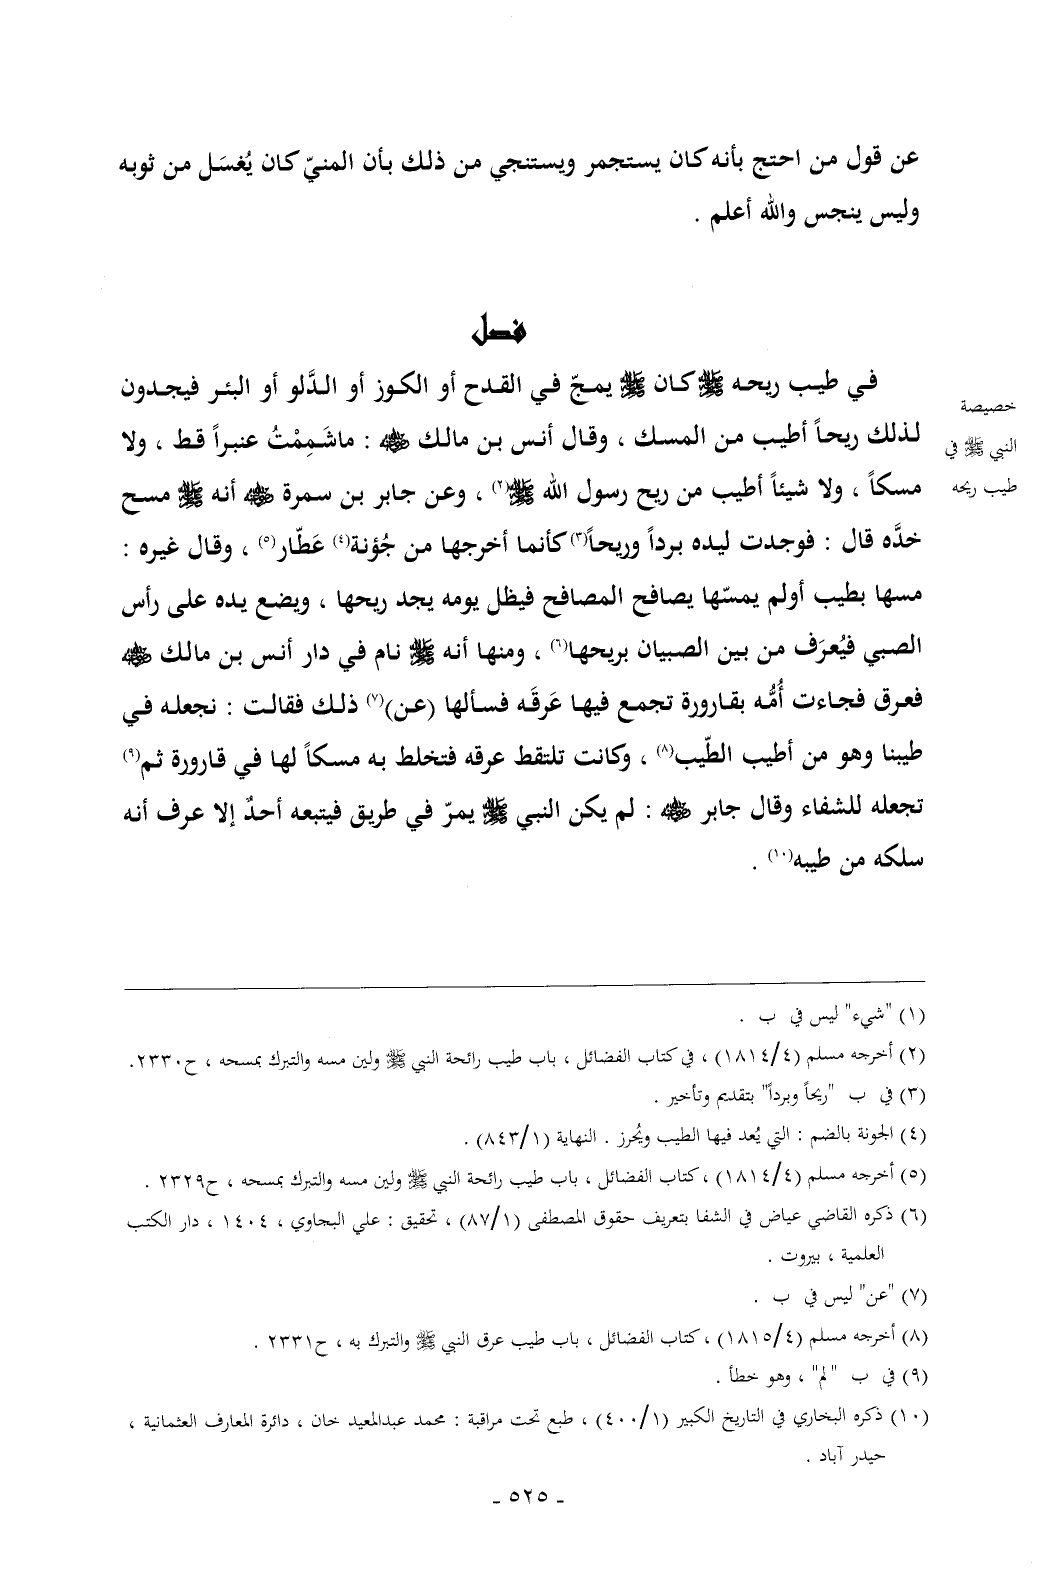 عن قول من احتج بأنه كان يستجمر ويستنجي من ذلك بأن المنيّ كان يُغسَل من ثوبه
وليس ينجس والله أعلم .
فصل
في طيب ريحه ﷺ كان ﷺ يمجّ في القدح أو الكوز أو الدَّلو أو البئر فيجدون
لذلك ريحاً أطيب من المسك ، وقال أنس بن مالك ﷺ : ماشَمِمْتُ عنبراً قط ، ولا
مسكاً ، ولا شيئاً أطيب من ريح رسول الله ﷺ(٢) ، وعن جابر بن سمرة رضي الله عنه أنه ﷺ مسح
خدَّه قال : فوجدت ليده برداً وريحاً(٣) كأنما أخرجها من جُؤنة(٤) عَطّار(٥) ، وقال غيره :
مسها بطيب أولم يمسّها يصافح المصافح فيظل يومه يجد ريحها ، ويضع يده على رأس
الصبي فيُعرَف من بين الصبيان بريحها(٦) ، ومنها أنه ﷺ نام في دار أنس بن مالك رضي الله عنه
فعرق فجاءت أُمُّه بقارورة تجمع فيها عَرقَه فسألها (عن)(٧) ذلك فقالت : نجعله في
طيبنا وهو من أطيب الطّيب(٨) ، وكانت تلتقط عرقه فتخلط به مسكاً لها في قارورة ثم(٩)
تجعله للشفاء وقال جابر رضي الله عنه : لم يكن النبي ﷺ يمرّ في طريق فيتبعه أحدٌ إلا عرف أنه
سلكه من طيبه(١٠) .
خصيصة
النبي ﷺ في
طيب ريحه
(١) "شيء" ليس في ب .
(٢) أخرجه مسلم (١٨١٤/٤) ، في كتاب الفضائل ، باب طيب رائحة النبي ﷺ ولين مسه والتبرك بمسحه ، ح٢٣٣٠.
(٣) في ب "ريحاً وبرداً" بتقديم وتأخير .
(٤) الجونة بالضم : التي يُعد فيها الطيب ويُحرز . النهاية (٨٤٣/١) .
(٥) أخرجه مسلم (١٨١٤/٤) ، كتاب الفضائل ، باب طيب رائحة النبي ﷺ ولين مسه والتبرك بمسحه ، ح٢٣٢٩ .
(٦) ذكره القاضي عياض في الشفا بتعريف حقوق المصطفى (٨٧/١) ، تحقيق : علي البجاوي ، ١٤٠٤ ، دار الكتب
العلمية ، بيروت .
(٧) "عن" ليس في ب .
(٨) أخرجه مسلم (١٨١٥/٤) ، كتاب الفضائل ، باب طيب عرق النبي ﷺ والتبرك به ، ح٢٣٣١ .
(٩) في ب "لم" ، وهو خطأ .
(١٠) ذكره البخاري في التاريخ الكبير (٤٠٠/١) ، طبع تحت مراقبة : محمد عبدالمعيد خان ، دائرة المعارف العثمانية ،
حيدر آباد .
- ٥٢٥ -